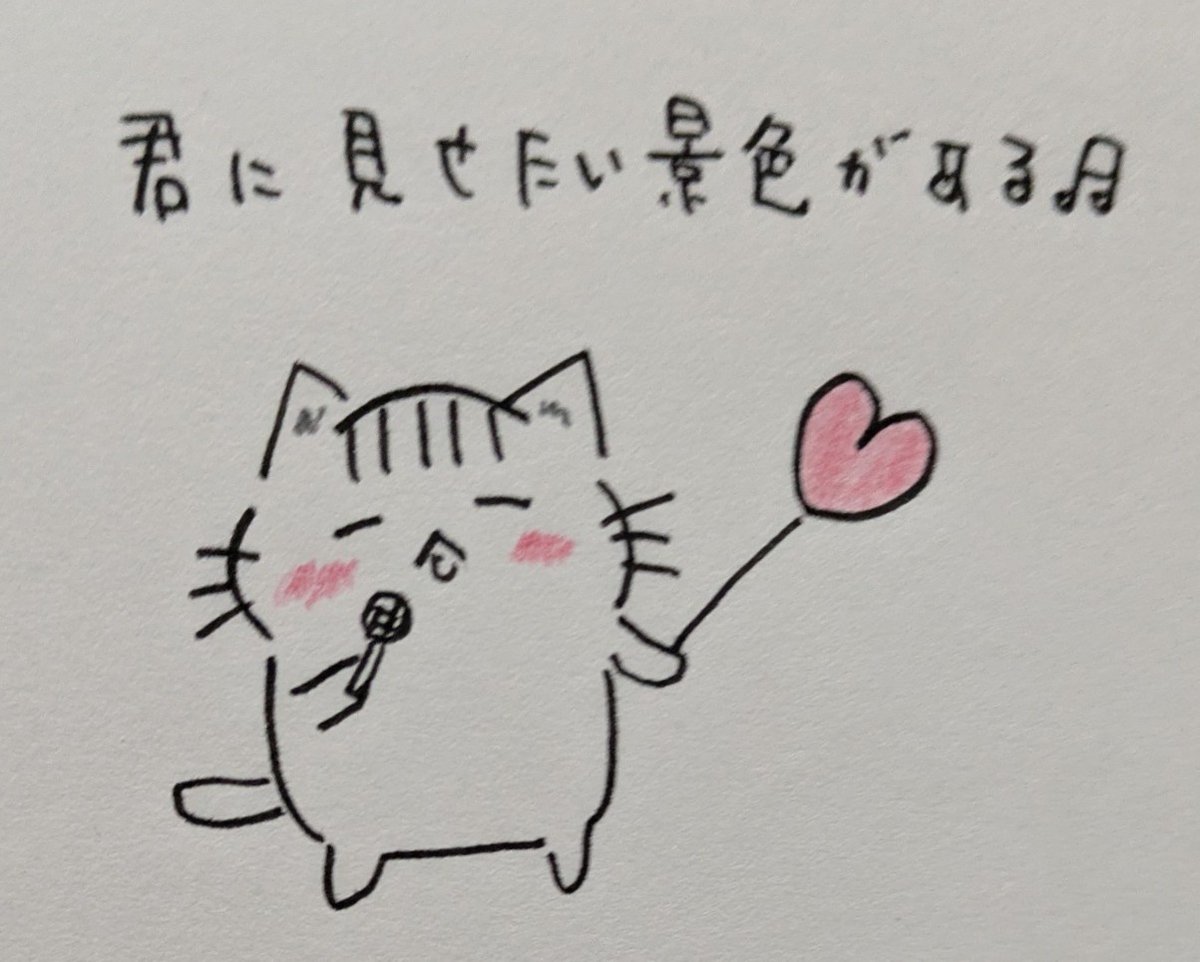 君に見せたい景色がある♫